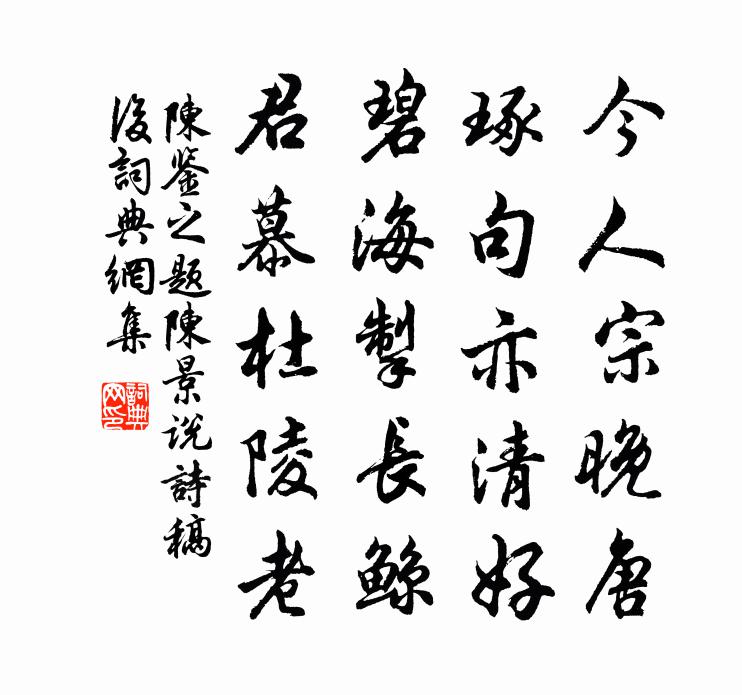 今人宗晚唐
琢句亦清好
碧海掣長鯨
君慕杜陵老
陳鉴之题陳景说詩稿
後詞典網集
詞典网印